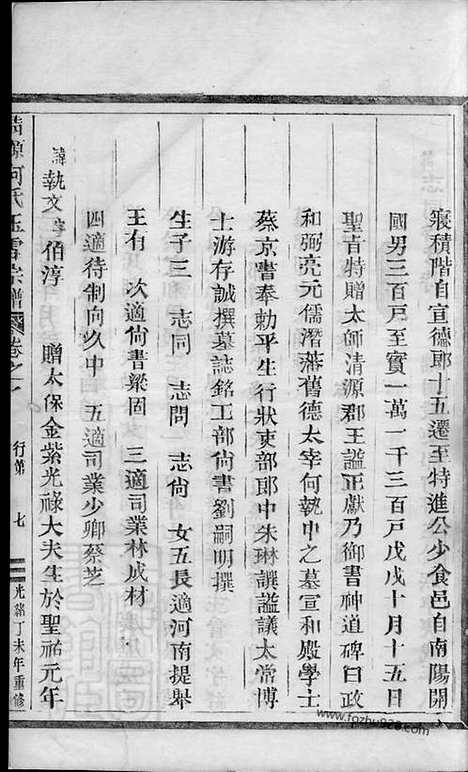 寢積階自宣德郎十五遷至特進公少食邑自南陽開
國男三百戶至實一萬一千三百戶戊戌十月十五日
聖旨特贈太師清源郡王謚正獻乃御書神道碑曰政
和弼亮元儒潛藩舊德太宰何執中之墓宣和殿學士
蔡京書奉勅平生行狀吏部郎中朱琳譔謚議太常博
士游存誠撰墓誌銘工部尚書劉嗣明撰
生子三 志同 志問 志尚 女五長適河南提舉
王有 次適尚書梁固 三適司業林成材
四適待制向久中 五適司業少卿蔡芝
諱執文字伯淳 贈太保金紫光祿大夫生於聖祐元年
清源何氏玉雪宗譜 卷之 行第 七 光緒丁未年重修
www.fozhu920.com